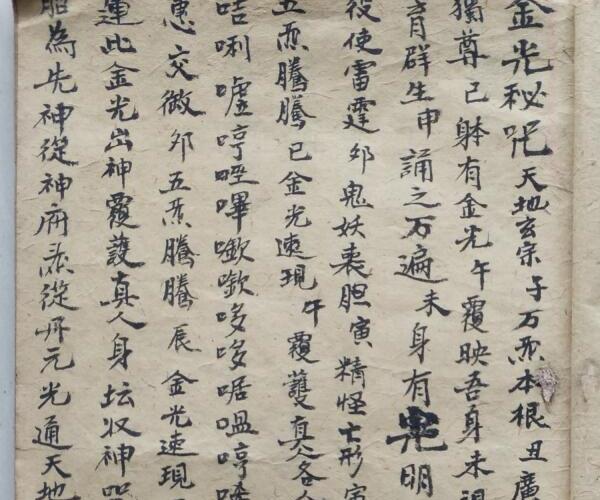 金光秘咒天地玄宗子万炁本根丑廣
獨尊已躰有金光午覆映吾身未視
育群生申誦之万遍未身有光明
役使雷霆夘鬼妖丧胆寅精怪亡形寅
五炁騰騰巳金光速現午覆護真人各
咭唎嘘哼哩嗶嗽嗽哆哆啒嗢哼
惠交徹夘五炁騰騰辰金光速現
運此金光出神覆護真人身坛収神
胆為先神從神府炁從丹元光通天地